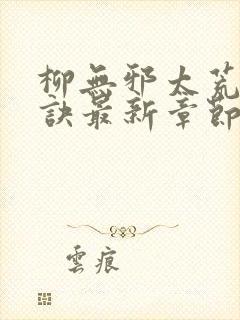 柳無邪太荒
訣最新章節
雲痕